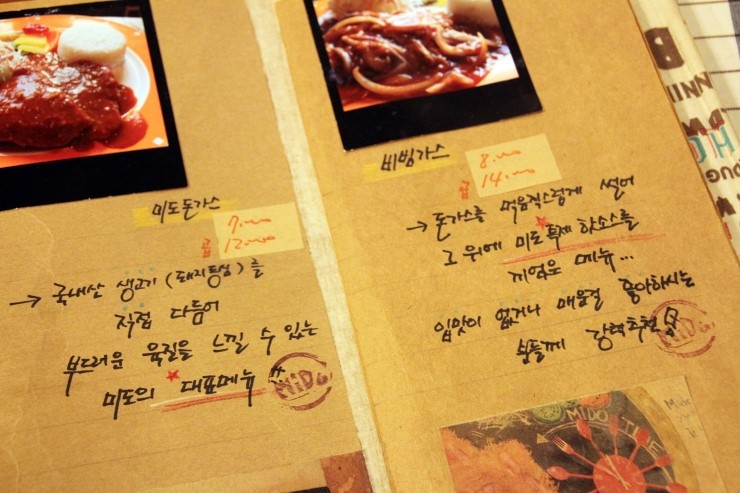 미도돈가스
7.000
곱 12.000
→ 국내산 생고기(돼지등심)를
직접 다듬어
부드러운 육질을 느낄 수 있는
미도의 대표메뉴
MiDo
비빔가스
8.000
곱 14.000
→ 돈가스를 먹음직스럽게 썰어
그 위에 미도 특제 핫소스를
끼얹은 메뉴...
입맛이 없거나 매운걸 좋아하시는
분들께 강력추천
MiDo
MIDO TIME
B